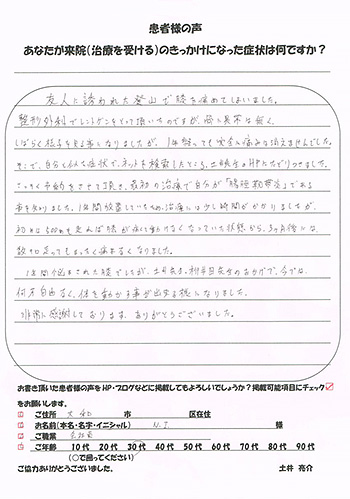 患者様の声
あなたが来院(治療を受ける)のきっかけになった症状は何ですか?
友人に誘われた登山で膝を痛めてしまいました。
整形外科でレントゲンをとって頂いたのですが、骨に異常は無く、
しばらく様子を見る事になりましたが、1年経っても完全に痛みは消えませんでした。
そこで、自分と似た症状で、ネットを検索したところ、土井先生のHPにたどりつきました。
さっそく予約をさせて頂き、最初の治療で自分が「腸脛靭帯炎」である
事を知りました。1年間放置していたため、治療には少し時間がかかりましたが、
初めは100mも走れば膝が痛くて動けなくなっていた状態から、3ヶ月後には
数キロ走ってもまったく痛まなくなりました。
1年間悩まされた膝でしたが、土井先生、
先生のおかげで、今では
何不自由なく、体を動かす事が出来る様になりました。
非常に感謝しております。ありがとうございました。
お書き頂いた患者様の声をHP・ブログなどに掲載してもよろしいでしょうか?掲載可能項目にチェック
をお願いします。
ご住所 大和 市 区在住
お名前(本名・名字・イニシャル) 様
ご職業 会社員
ご年齢 10代 20代 30代 40代 50代 60代 70代 80代 90代
(○で囲ってください)
ご協力ありがとうございました。 土井 亮介